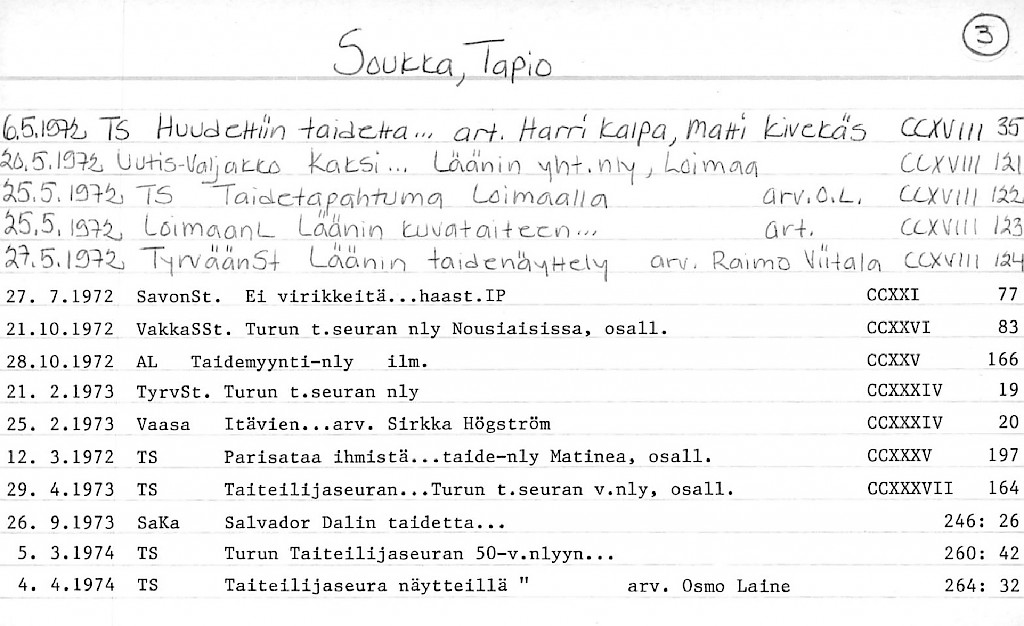 3
Soukka, Tapio
6.5.1972 TS Huudettiin taidetta... art. Harri Kalpa, Matti Kivekäs CCXVIII 35
20.5.1972 Uutis-Valjakko Kaksi... Läänin yht.nly, Loimaa CCXVIII 121
25.5.1972 TS Taidetapahtuma Loimaalla arv.O.L. CCXVIII 122
25.5.1972 LoimaanL Läänin kuvataiteen... art. CCXVIII 123
27.5.1972 TyrväänSt Läänin taidenäyttely arv. Raimo Viitala CCXVIII 124
27. 7.1972 SavonSt. Ei virikkeitä...haast.IP CCXXI 77
21.10.1972 VakkaSSt. Turun t.seuran nly Nousiaisissa, osall. CCXXVI 83
28.10.1972 AL Taidemyynti-nly ilm. CCXXV 166
21. 2.1973 TyrvSt. Turun t.seuran nly CCXXXIV 19
25. 2.1973 Vaasa Itävien...arv. Sirkka Högström CCXXXIV 20
12. 3.1972 TS Parisataa ihmistä...taide-nly Matinea, osall. CCXXXV 197
29. 4.1973 TS Taiteilijaseuran...Turun t.seuran v.nly, osall. CCXXXVII 164
26. 9.1973 SaKa Salvador Dalin taidetta... 246: 26
5. 3.1974 TS Turun Taiteilijaseuran 50-v.nlyyn... 260: 42
4. 4.1974 TS Taiteilijaseura näytteillä " arv. Osmo Laine 264: 32